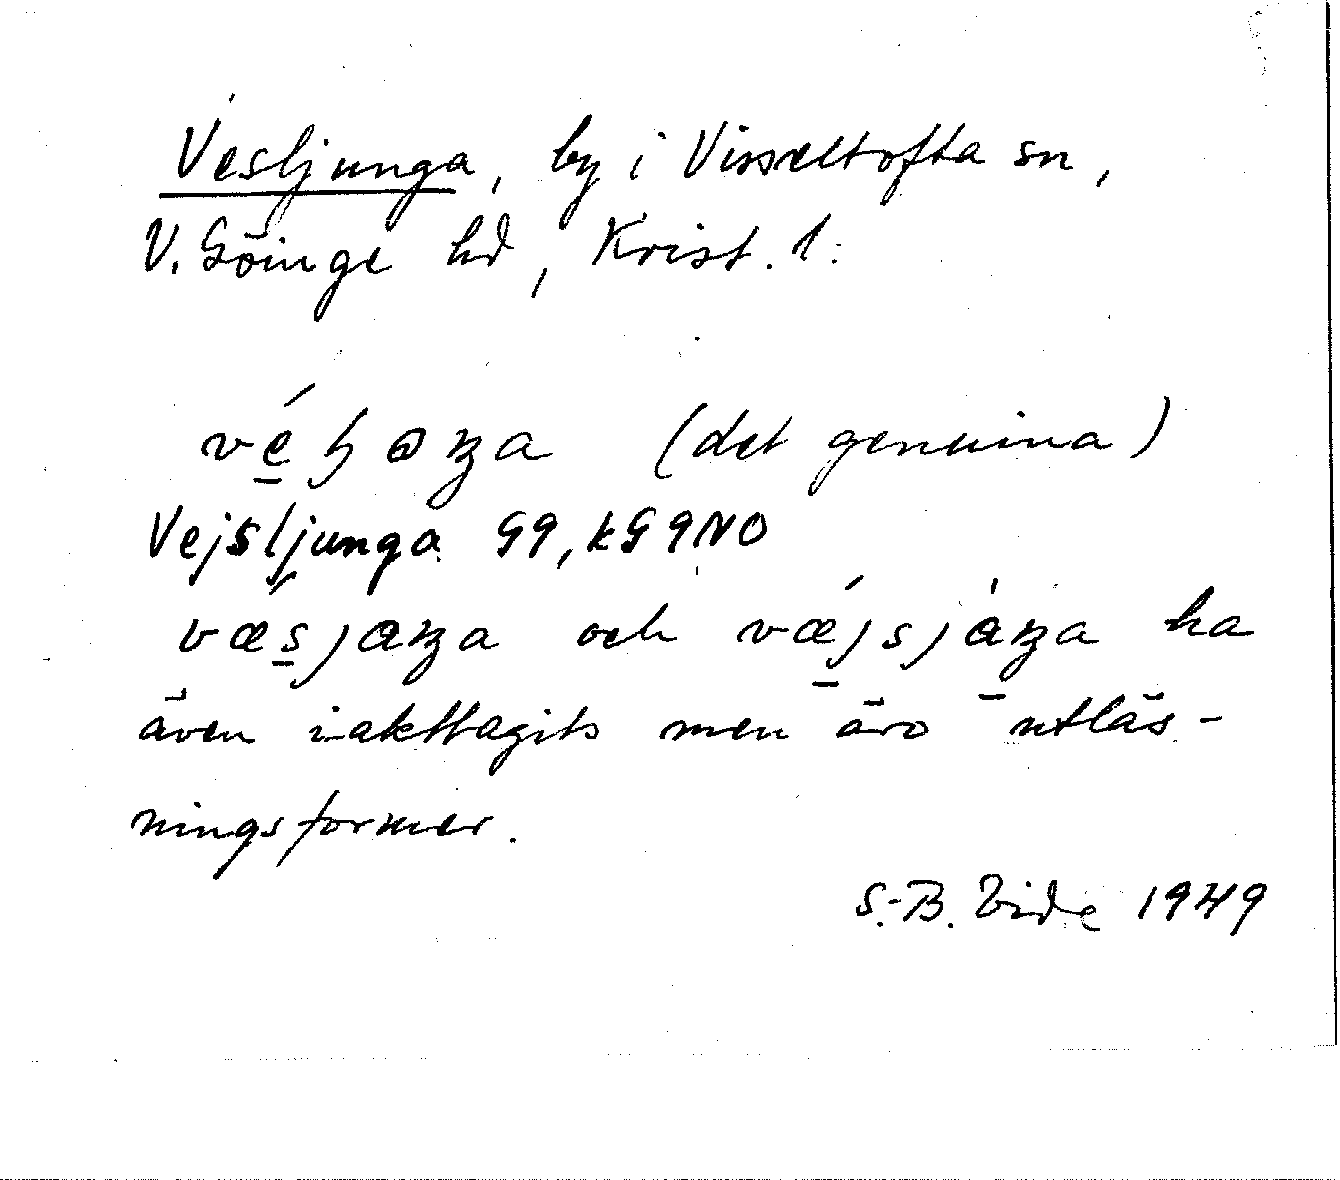 Vesljunga, by i Visseltofta sn,
V. Göinge hd, Krist. l.
(det genuina)
Vejsljunga G9, kG9NO
och ha
även iakttagits men äro utläs-
ningsformer.
S.-B. Vide 1949